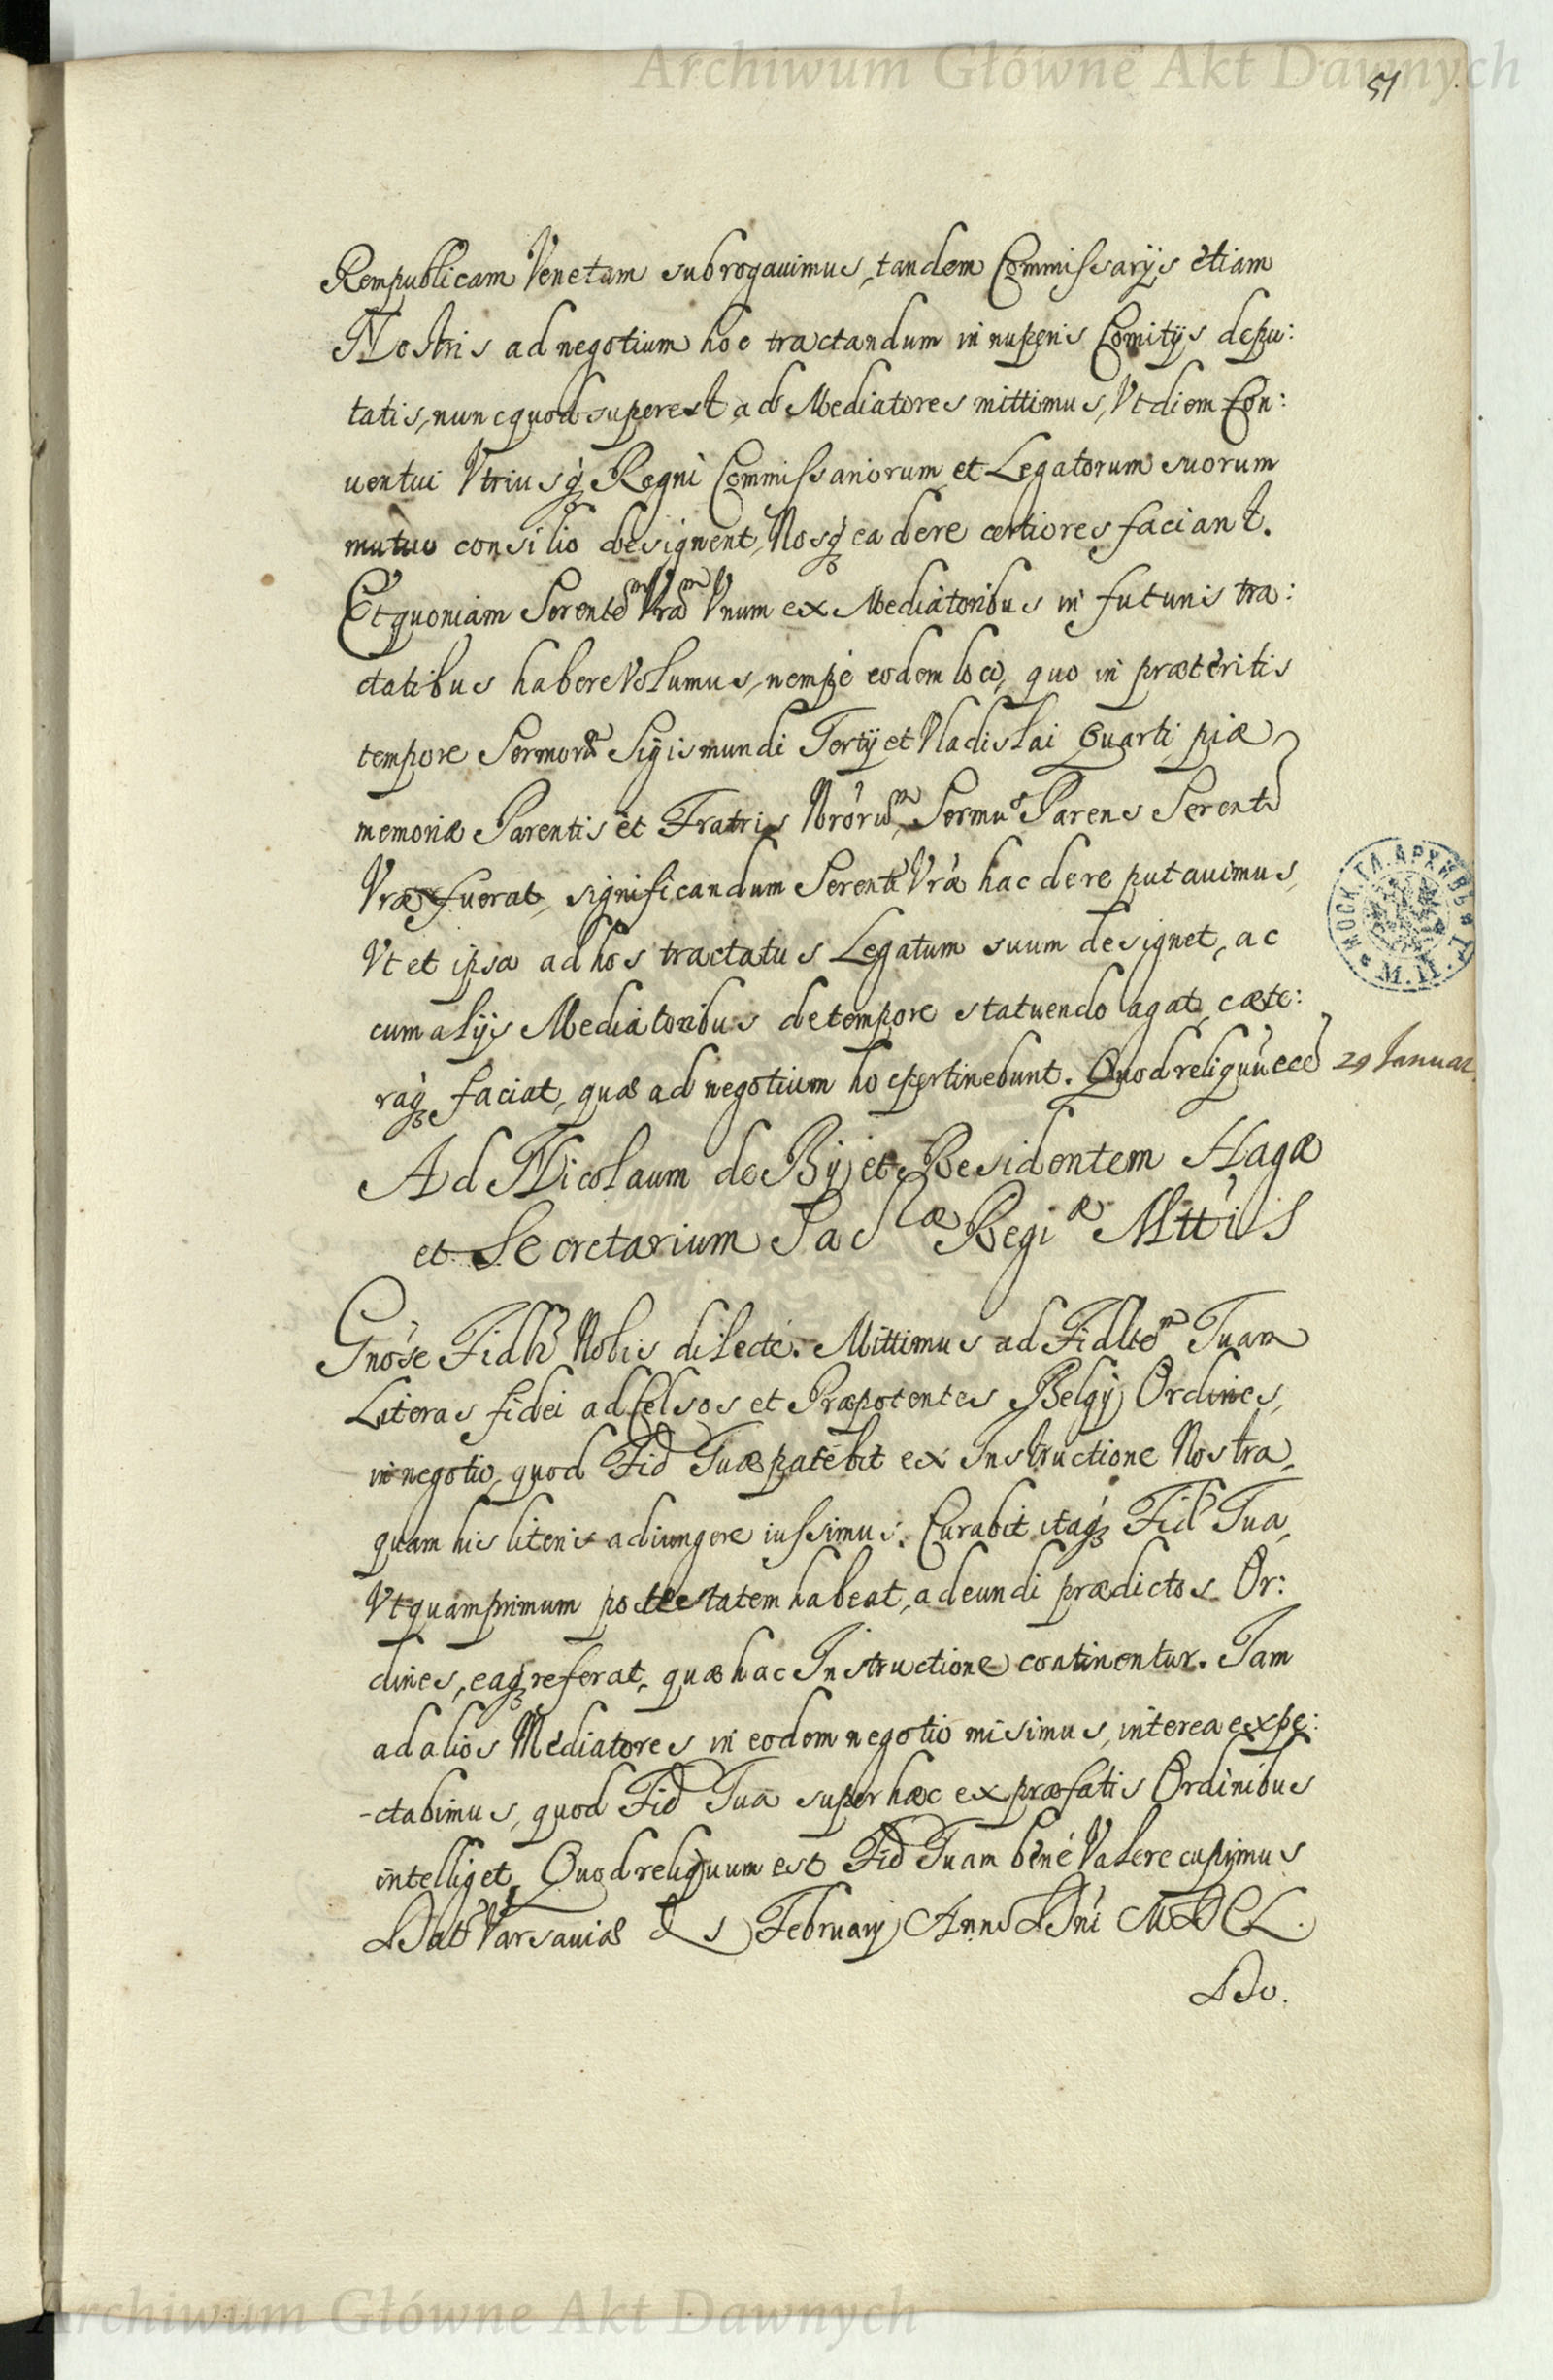 Archiwum Główne Akt Dawnych
51
Rempublicam Venetam subrogauimus, tandem Commissarijs etiam
Nostris ad negotium hoc tractandum in nuperis Comitijs depu:
tatis, nunc quod superest ad Mediatores mittimus, Vt diem Con:
uentui Vtriusq́ Regni Commissariorum et Legatorum suorum
mutuo consilio designent, Nosq́ ea de re certiores faciant.
Et quoniam Serenteḿ Vraḿ Vnum ex Mediatoribus in futuris tra:
ctatibus habere Volumus, nempè eodem loco, quo in præteritis
tempore Sermorū Sigismundi Tertij et Vladislai Quarti piæ
memoriæ Parentis et Fratris Nrórum, Sermus Parens Serenti
Vræ fuerat, significandum Serenti Vræ hac de re putauimus,
Vt et ipsa ad hos tractatus Legatum suum designet, ac
cum alijs Mediatoribus de tempore statuendo agat, cæte:
raq́ faciat, quæ ad negotium hoc pertinebunt. Quod reliquū ecc
29 Januar.
Ad Nicolaum de Bij et Residentem Hagæ
et Secretarium Sacræ Regiæ Mttis
Gnóse Fidlr Nobis dilecte. Mittimus ad Fidltem Tuam
Literas fidei ad Celsos et Præpotentes Belgij Ordines,
in negotio, quod Fid Tuæ patebit ex Instructione Nostra,
quam his literis adiungere iussimus. Curabit itaq́ Fid Tua,
Vt quamprimum potestatem habeat, adeundi prædictos Or:
dines, eaq́ referat, quæ hac Instructione continentur. Jam
ad alios Mediatores in eodem negotio misimus, interea expe:
-ctabimus, quod Fid Tua super hæc ex præfatis Ordinibus
intelliget, Quod reliquum est Fid Tuam bene Valere cupimus
Dat Varsauiæ d 1 February Anno Dni MDCL.
Do.
МОСК. ГЛ. АРХИВЪ
М.И.Д.
Archiwum Główne Akt Dawnych